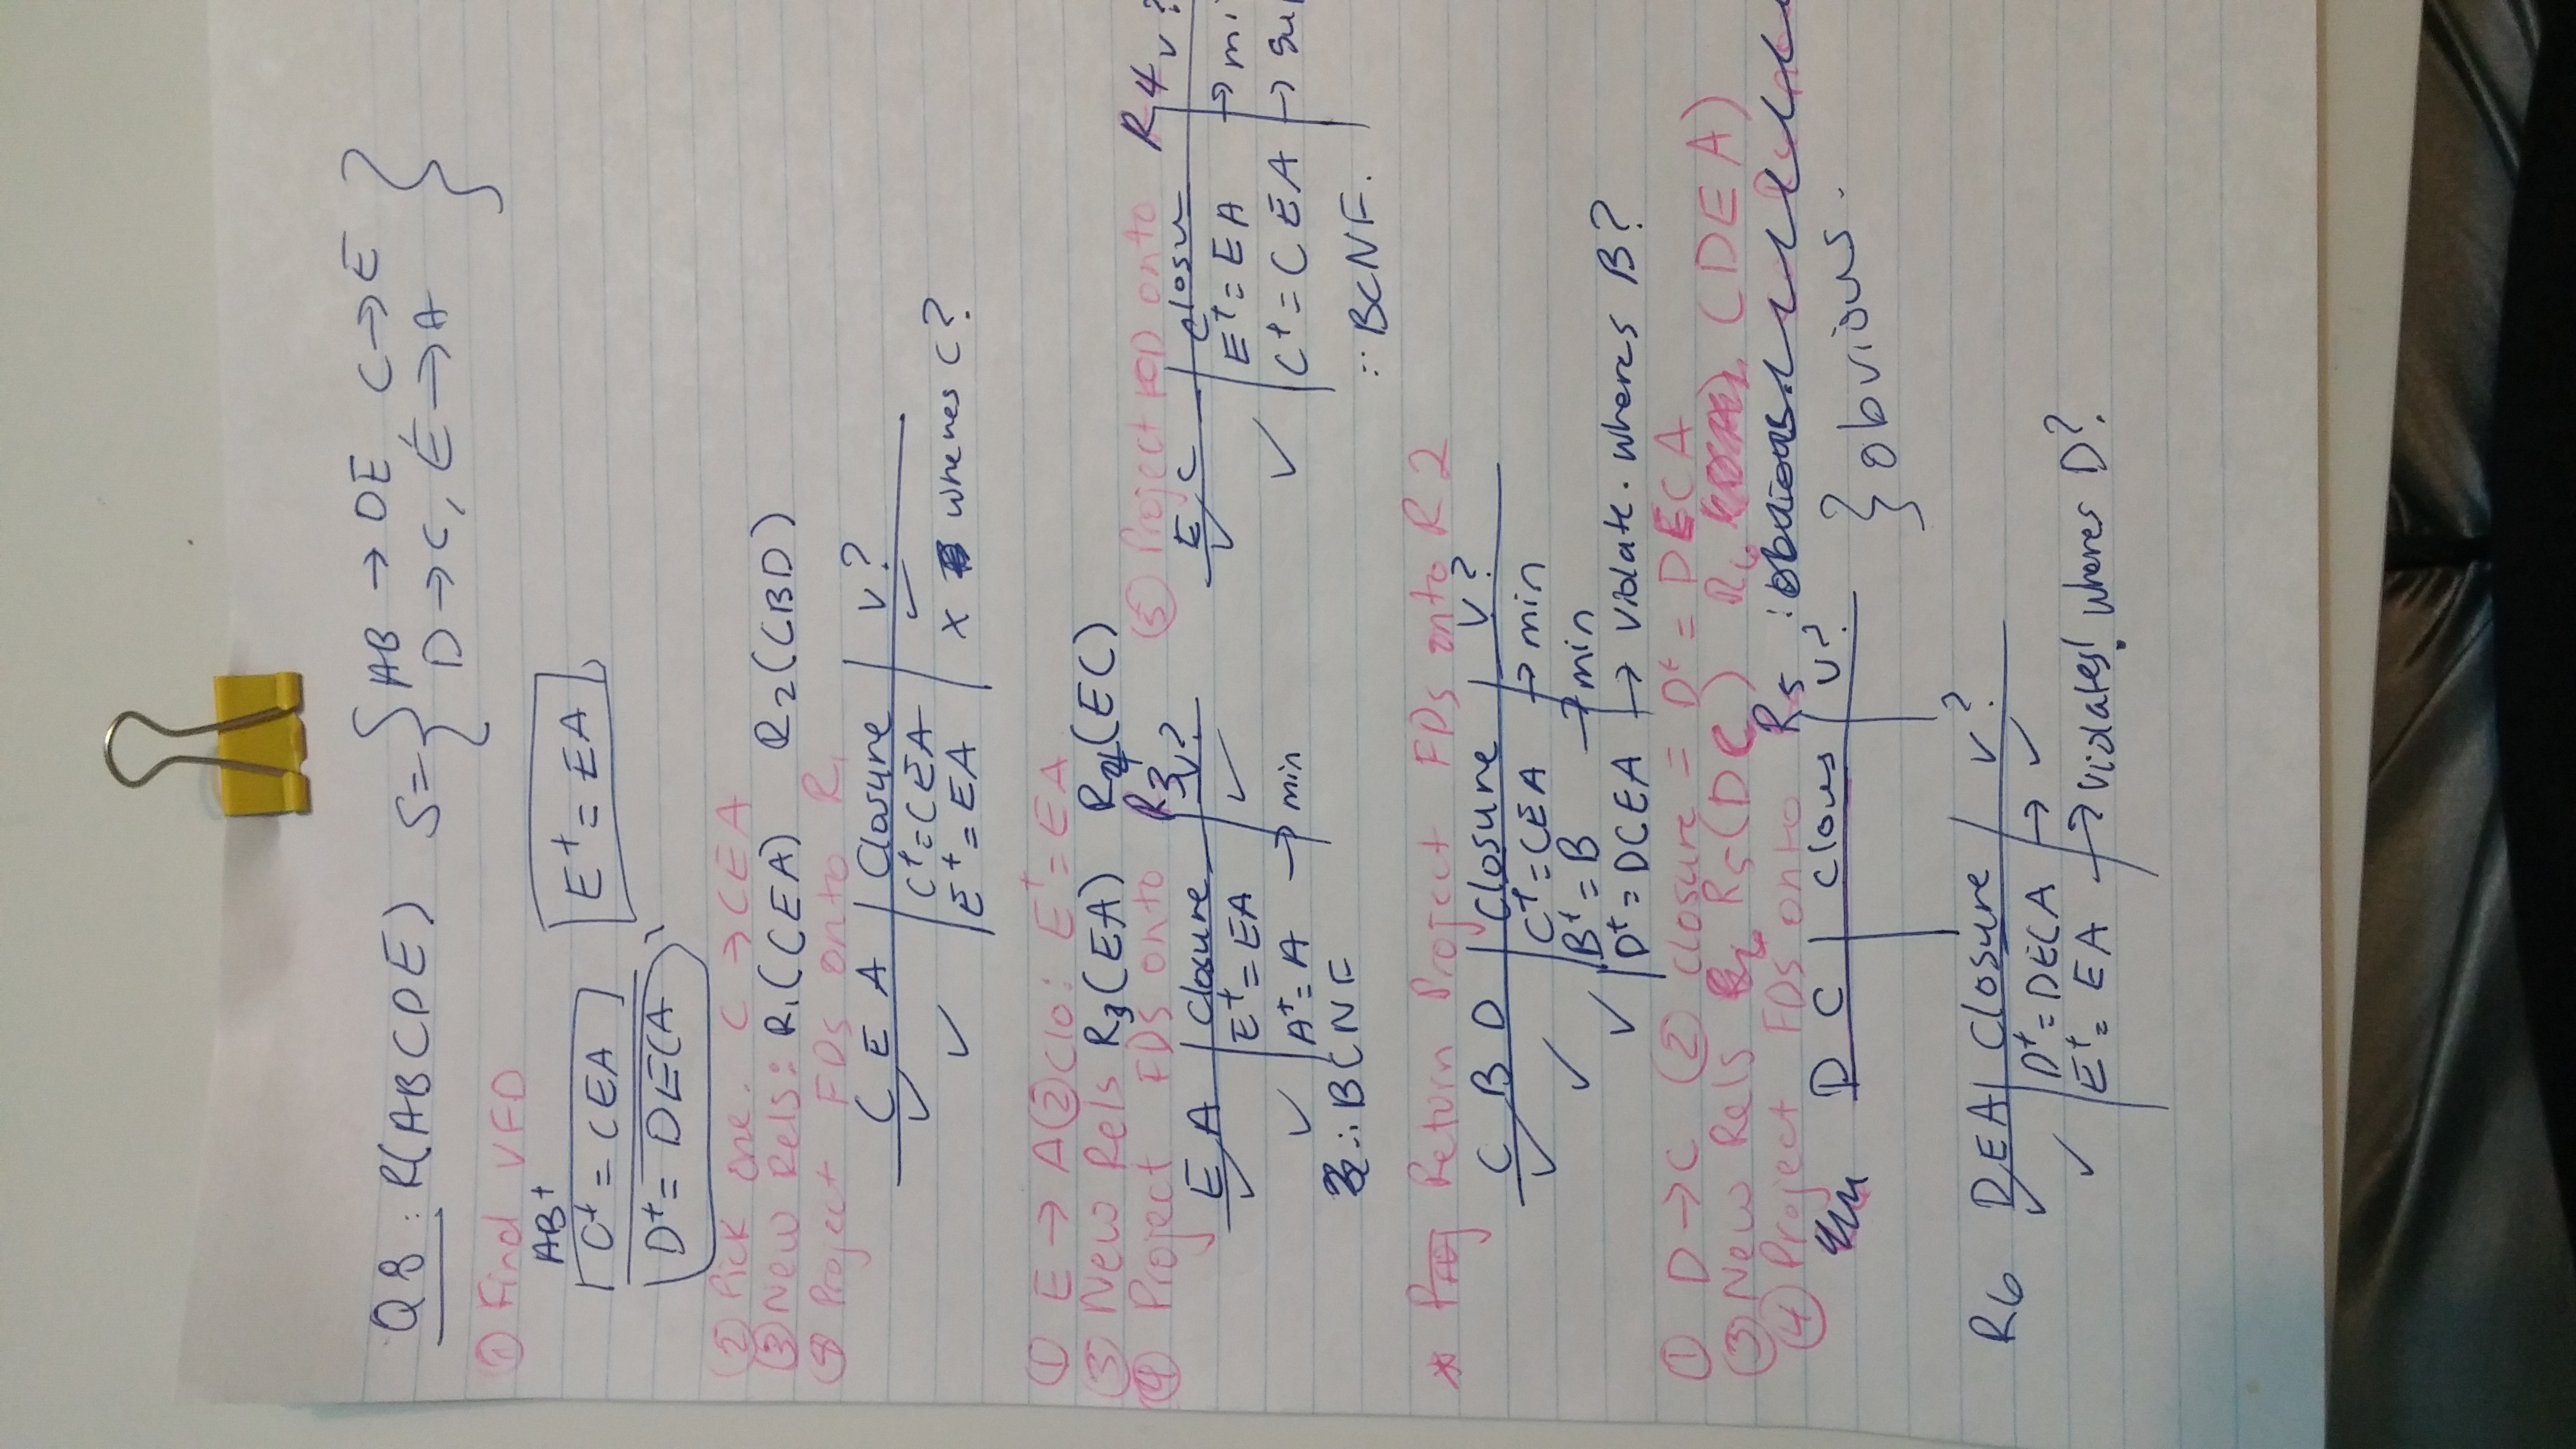 Q8: R(ABCDE) S={ AB → DE, C → E
D → C, E → A }
① Find VFD
AB⁺
C⁺ = CEA E⁺ = EA
D⁺ = DECA
② Pick one. C → CEA
③ New Rels: R₁(CEA) R₂(CBD)
④ Project FDs onto R₁
C E A | Closure | V?
✓ C⁺=CEA ✓
✓ E⁺=EA x wheres C?
① E → A ② Clo: E⁺=EA
③ New Rels R₃(EA) R₄(EC)
④ Project FDs onto R3
E A | Closure | V?
✓ E⁺=EA ✓
✓ A⁺=A → min
∴ BCNF
⑤ Project FD onto R4
E C | Closu | V?
✓ E⁺=EA → mi
✓ C⁺=CEA → Su
∴ BCNF.
* Proj Return Project FDs onto R2
C B D | Closure | V?
✓ C⁺=CEA → min
✓ B⁺=B → min
✓ D⁺=DCEA → Violate. wheres B?
① D → C ② closure = D⁺ = DECA
③ New Rels R₅(DC) R₆ (DEA)
④ Project FDs onto R5 : obvious.
D C | Clous | V? } obvious.
R6 DEA | Closure | V?
✓ D⁺=DECA → ✓
✓ E⁺=EA → Violates! wheres D?